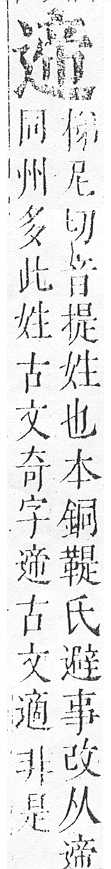 遆
悌尼切音提姓也本銅鞮氏避事改从啻
同州多此姓古文奇字遆古文適非是